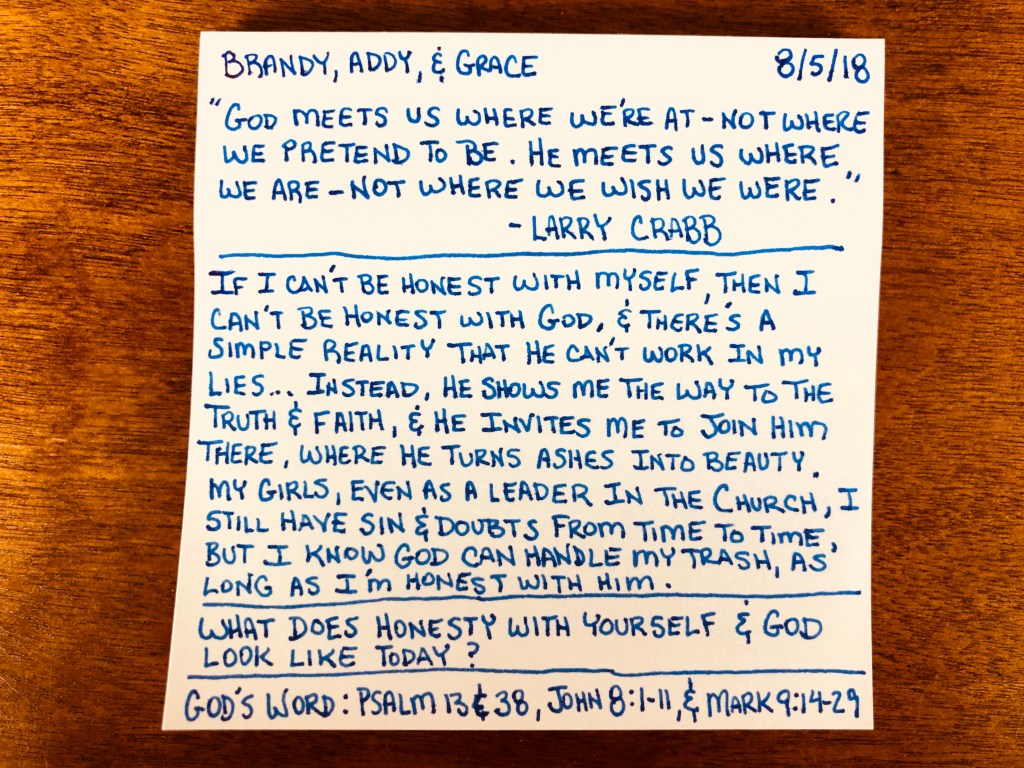 BRANDY, ADDY, & GRACE 8/5/18
"GOD MEETS US WHERE WE'RE AT - NOT WHERE
WE PRETEND TO BE. HE MEETS US WHERE
WE ARE - NOT WHERE WE WISH WE WERE."
- LARRY CRABB
IF I CAN'T BE HONEST WITH MYSELF, THEN I
CAN'T BE HONEST WITH GOD, & THERE'S A
SIMPLE REALITY THAT HE CAN'T WORK IN MY
LIES... INSTEAD, HE SHOWS ME THE WAY TO THE
TRUTH & FAITH, & HE INVITES ME TO JOIN HIM
THERE, WHERE HE TURNS ASHES INTO BEAUTY.
MY GIRLS, EVEN AS A LEADER IN THE CHURCH, I
STILL HAVE SIN & DOUBTS FROM TIME TO TIME,
BUT I KNOW GOD CAN HANDLE MY TRASH, AS
LONG AS I'M HONEST WITH HIM.
WHAT DOES HONESTY WITH YOURSELF & GOD
LOOK LIKE TODAY?
GOD'S WORD: PSALM 13 & 38, JOHN 8:1-11, & MARK 9:14-29